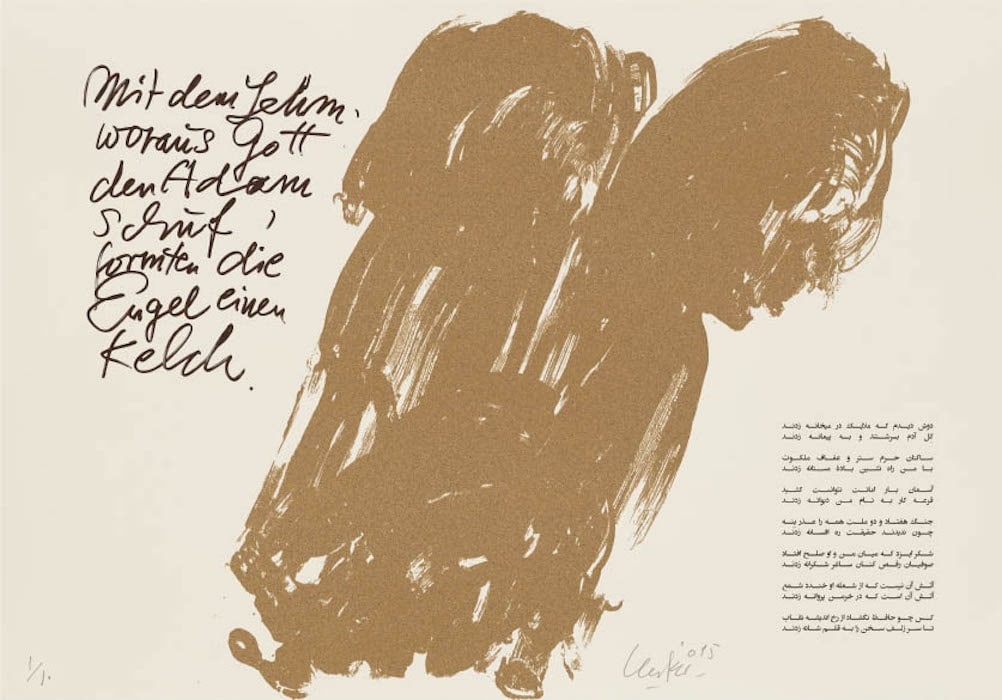 Mit dem Lehm.
woraus Gott
den Adam
schuf,
formten die
Engel einen
Kelch.
دوش دیدم که ملایک در میخانه زدند
گل آدم بسرشتند و به پیمانه زدند
ساکنان حرم ستر و عفاف ملکوت
با من راه نشین بادهٔ مستانه زدند
آسمان بار امانت نتوانست کشید
قرعه کار به نام من دیوانه زدند
جنگ هفتاد و دو ملت همه را عذر بنه
چون ندیدند حقیقت ره افسانه زدند
شکر ایزد که میان من و او صلح افتاد
صوفیان رقص کنان ساغر شکرانه زدند
آتش آن نیست که از شعله او خندد شمع
آتش آن است که در خرمن پروانه زدند
کس چو حافظ نگشاد از رخ اندیشه نقاب
تا سر زلف سخن را به قلم شانه زدند
015